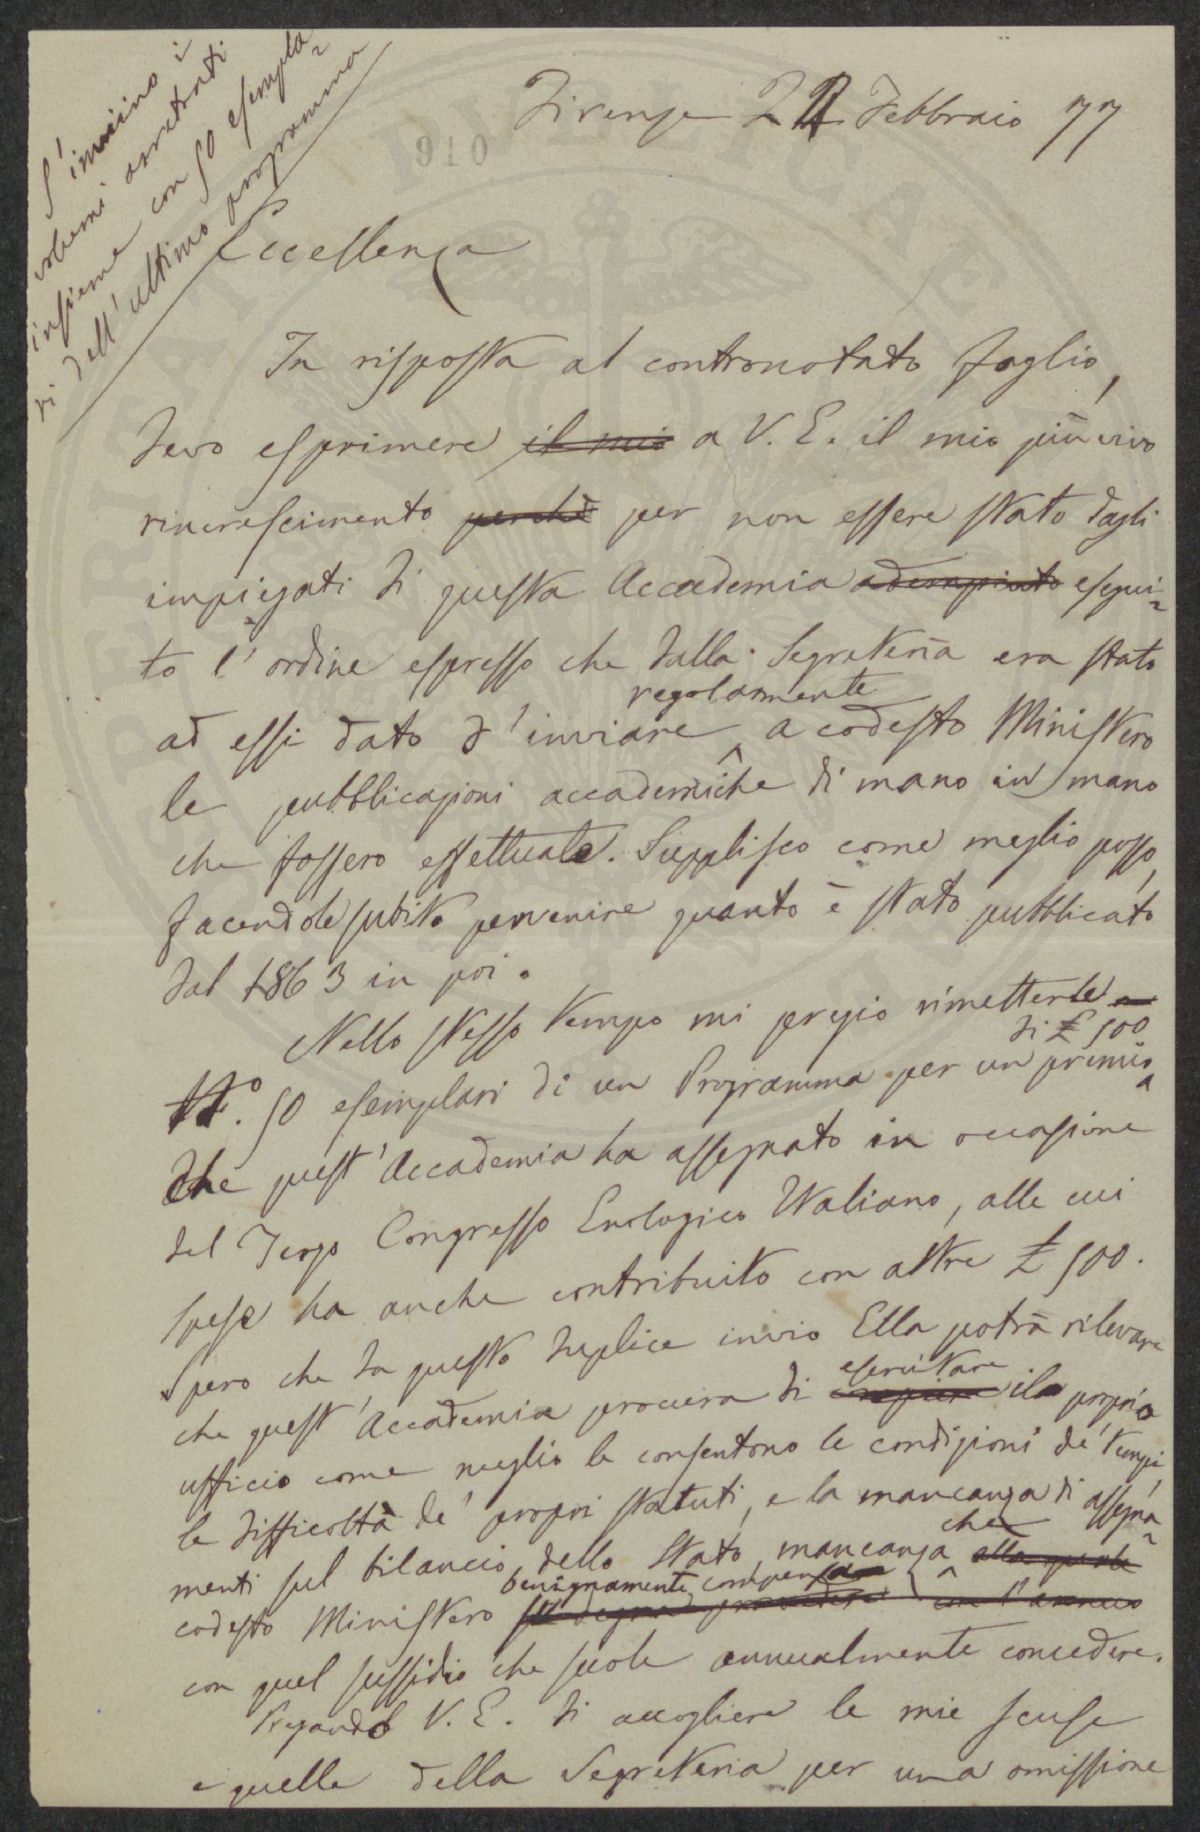 S'inviino i
volumi arretrati
insieme con 50 esempla=
ri dell'ultimo programma
Firenze 22 Febbraio 77
910
Eccellenza
In risposta al contronotato foglio,
devo esprimere il mio a V. E. il mio più vivo
rincrescimento perchè per non essere stato dagli
impiegati di questa Accademia adempiuto esegui=
to l'ordine espresso che dalla Segreteria era stato
regolarmente
ad essi dato d'inviare a codesto Ministero
le pubblicazioni accademiche di mano in mano
che fossero effettuate. Supplisco come meglio posso,
facendole subito pervenire quanto è stato pubblicato
dal 1863 in poi.
Nello stesso tempo mi pregio rimetterle
di £ 500
N.° 50 esemplari di un Programma per un premio
che quest'Accademia ha assegnato in occasione
del Terzo Congresso Enologico Italiano, alle cui
spese ha anche contribuito con altre £ 500.
Spero che da questo duplice invio Ella potrà rilevare
esercitare
che quest'Accademia procura di il proprio
ufficio come meglio le consentono le condizioni de' tempi,
le difficoltà de' propri statuti, e la mancanza di assegna=
che
menti sul bilancio dello Stato, mancanza alla quale
benignamente compensa
codesto Ministero si degna provvedere con l'annuo
con quel sussidio che suole annualmente concedere.
Pregando V. E. di accogliere le mie scuse
e quelle della Segreteria per una omissione